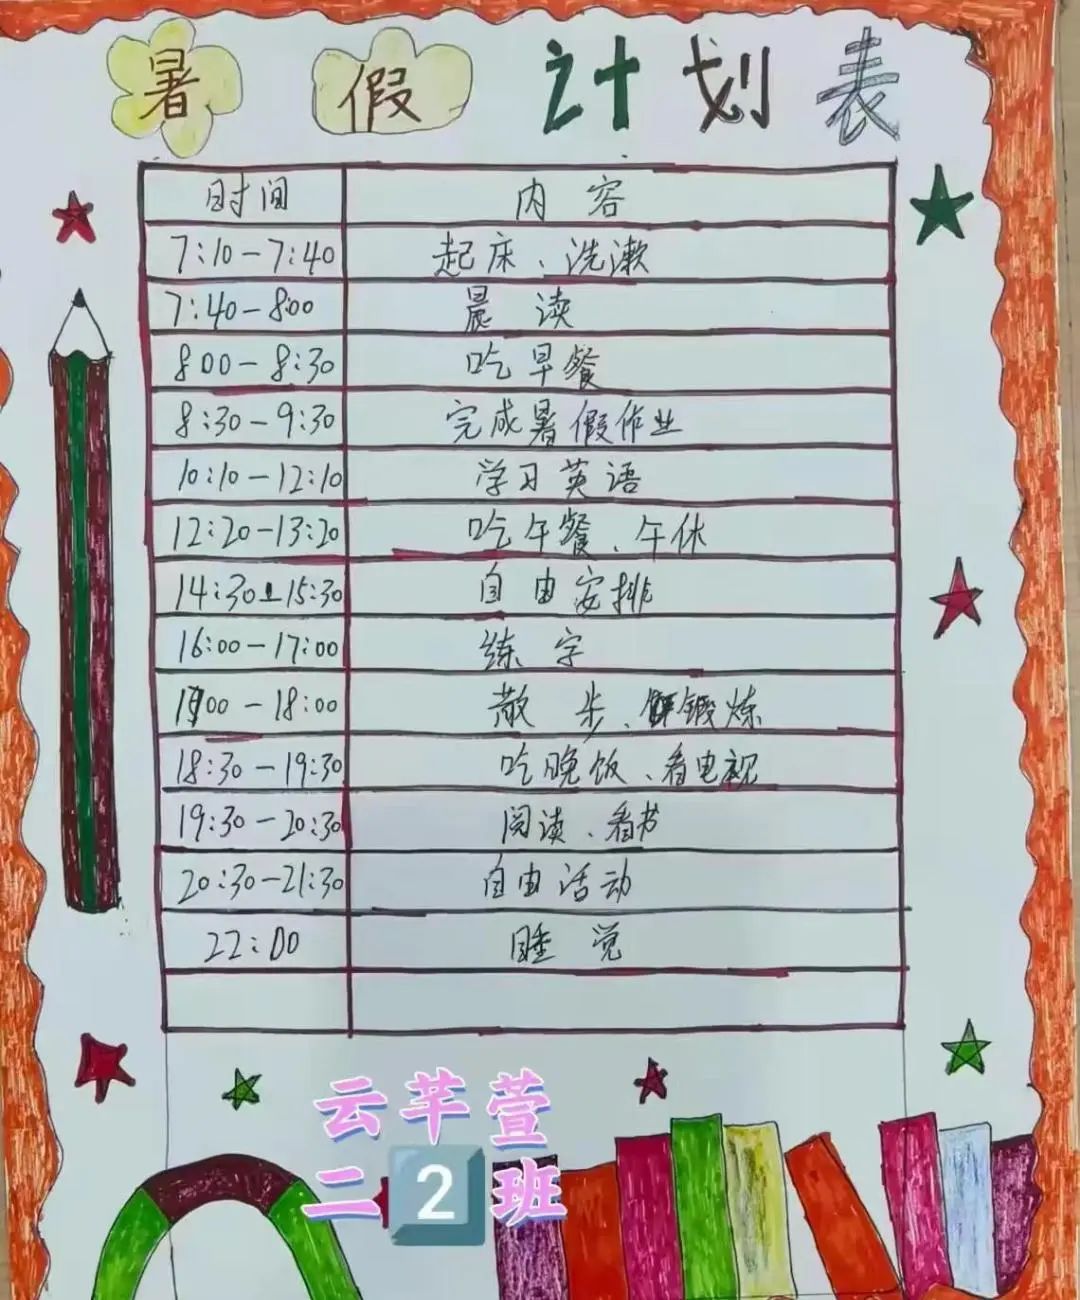 暑假计划表
时间 内容
7:10-7:40 起床、洗漱
7:40-8:00 晨读
8:00-8:30 吃早餐
8:30-9:30 完成暑假作业
10:10-12:10 学习英语
12:20-13:20 吃午餐、午休
14:30-15:30 自由安排
16:00-17:00 练字
17:00-18:00 散步、锻炼
18:30-19:30 吃晚饭、看电视
19:30-20:30 阅读、看书
20:30-21:30 自由活动
22:00 睡觉
云芊萱
二2班